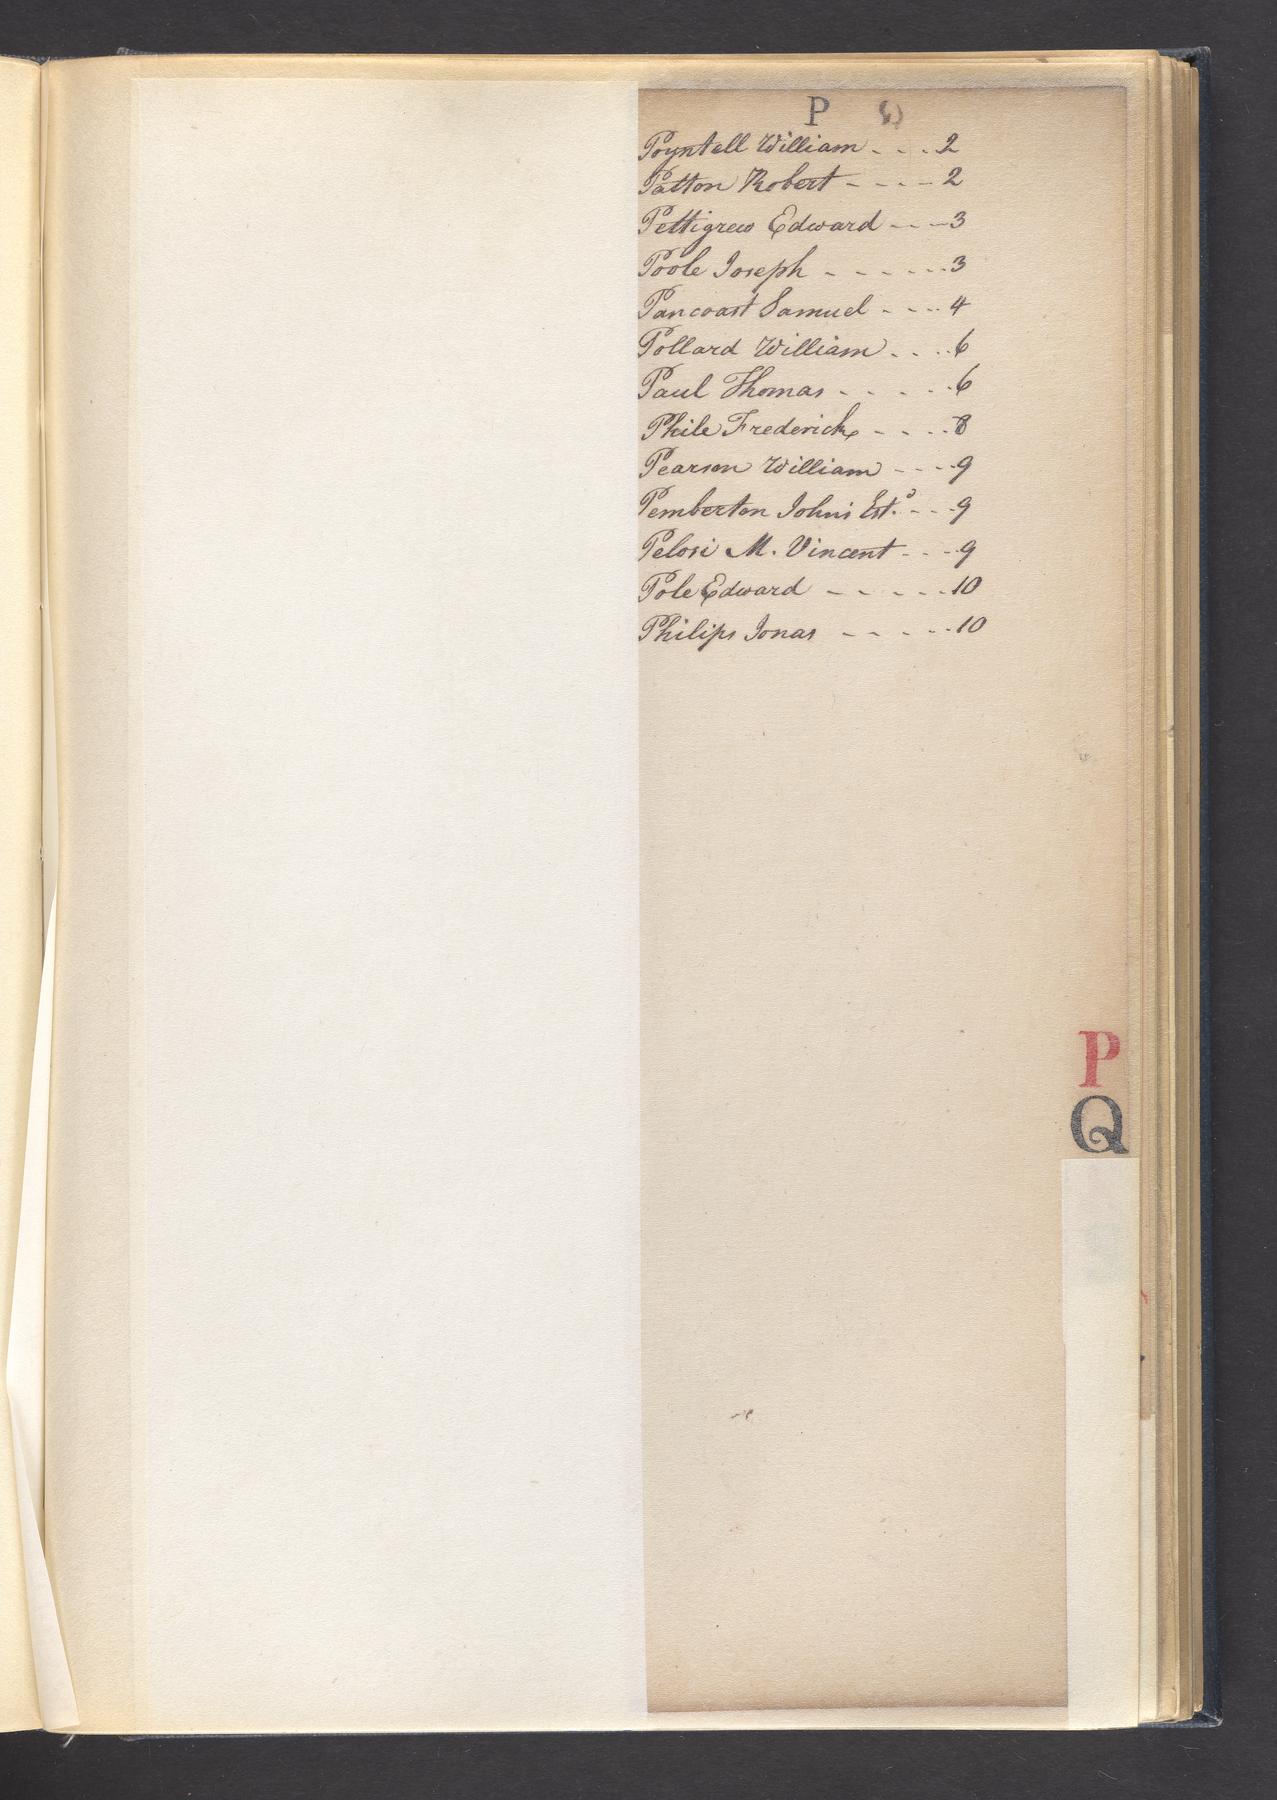 P
Poyntell William - - - 2
Patton Robert - - - - 2
Pettigrew Edward - - - 3
Poole Joseph - - - - - - 3
Pancoast Samuel - - - - 4
Pollard William - - - - 6
Paul Thomas - - - - - - 6
Phile Frederick - - - - 8
Pearson William - - - - 9
Pemberton Johns Est.ᵒ - - - 9
Pelosi M. Vincent - - - - 9
Pole Edward - - - - - - 10
Philips Jonas - - - - - - 10
P
Q